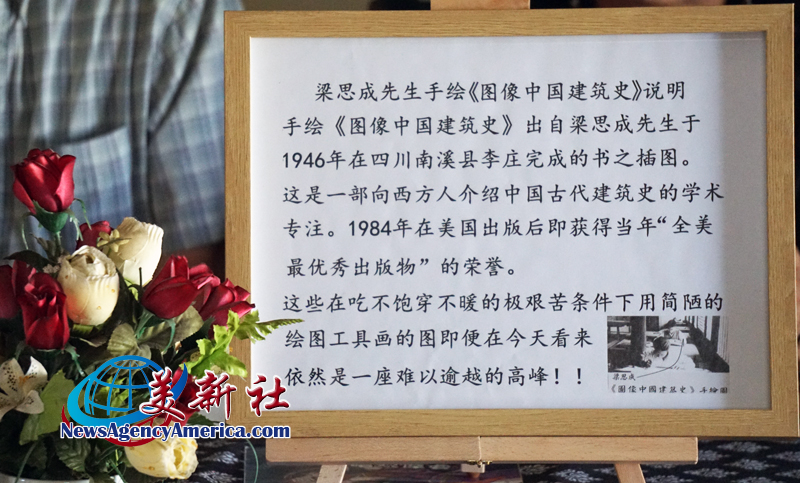 梁思成先生手绘《图像中国建筑史》说明
手绘《图像中国建筑史》出自梁思成先生于
1946年在四川南溪县李庄完成的书之插图。
这是一部向西方人介绍中国古代建筑史的学术
专注。1984年在美国出版后即获得当年“全美
最优秀出版物”的荣誉。
这些在吃不饱穿不暖的极艰苦条件下用简陋的
绘图工具画的图即便在今天看来
依然是一座难以逾越的高峰！！
梁思成
《图像中國建築史》手绘图
美新社
NewsAgencyAmerica.com